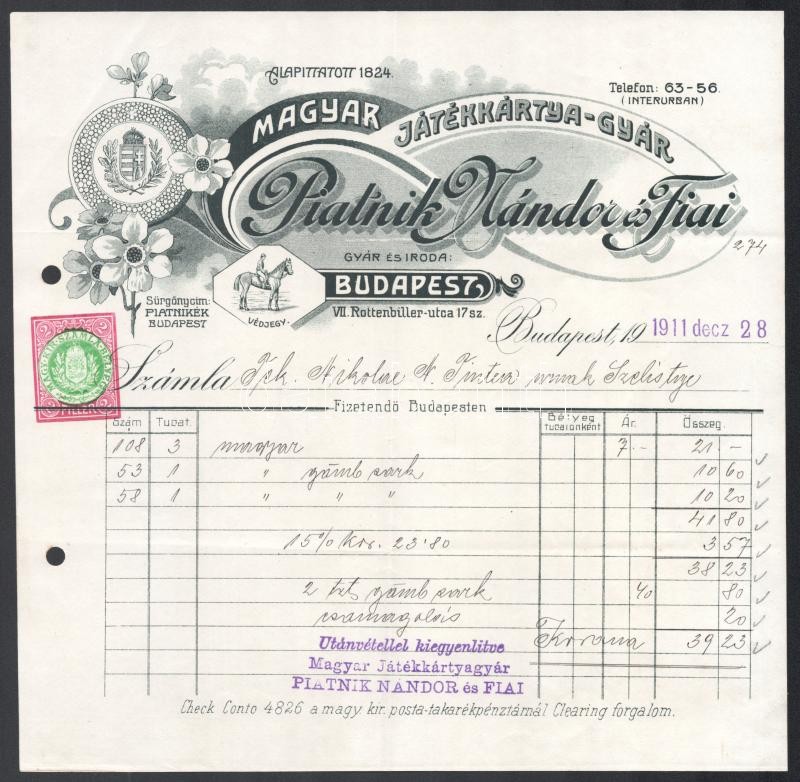 ALAPITTATOTT 1824.
Telefon: 63-56.
(INTERURBAN)
MAGYAR JÁTÉKKÁRTYA-GYÁR
Piatnik Nándor és Fiai
274
GYÁR ÉS IRODA:
BUDAPEST,
VII. Rottenbiller-utca 17 sz.
Sürgönycim:
PIATNIKÉK
BUDAPEST
VÉDJEGY.
Budapest, 19 1911 decz 28
2 2
FILLÉR
Számla Tek. Nikolae N. urnak Szelistye
Fizetendő Budapesten
Szám Tucat. Bélyeg tucatonként Ár. Összeg.
108 3 magyar 7.- 21.-
53 1 " gömb sark 10 60
58 1 " " " 10 20
41 80
15% Kr. 23·80 3 57
38 23
2 gömb sark 40 80
csomagolás 20
Korona 39 23
Utánvétellel kiegyenlitve
Magyar Játékkártyagyár
PIATNIK NÁNDOR és FIAI
Check Conto 4826 a magy. kir. posta-takarékpénztárnál Clearing forgalom.